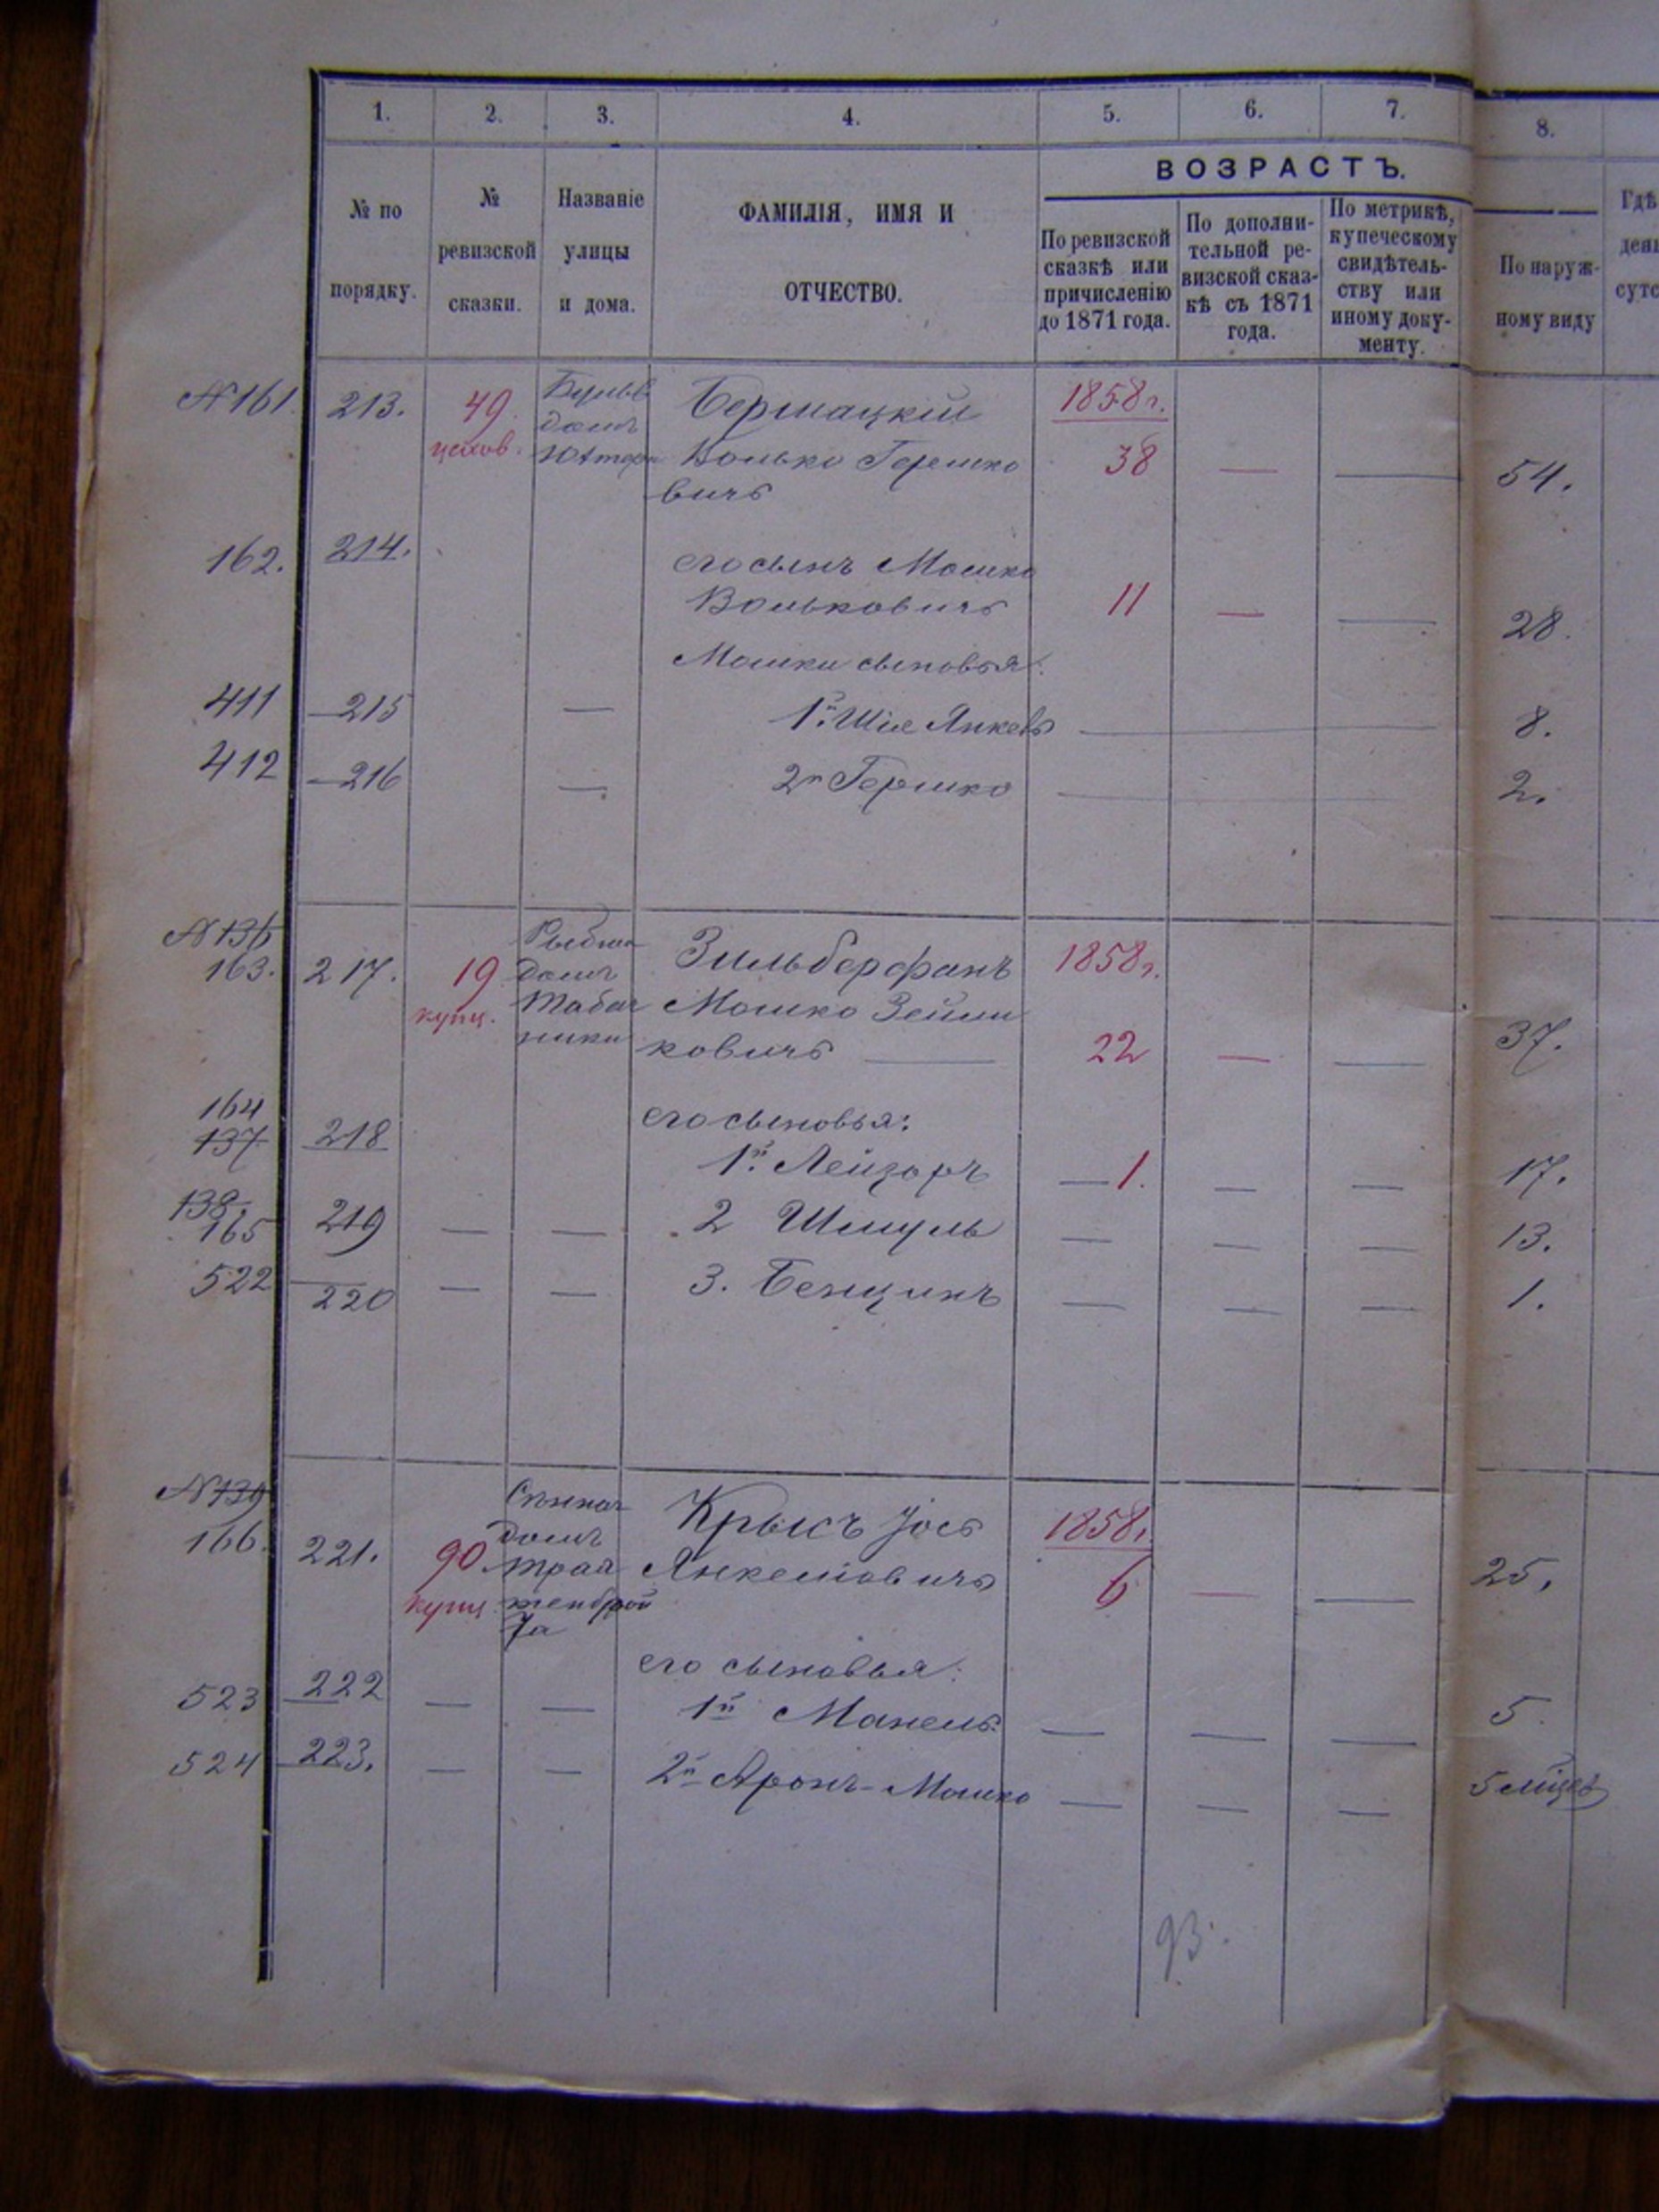 1. 2. 3. 4. 5. 6. 7. 8.
ВОЗРАСТЪ.
№ по порядку.
№ ревизской сказки.
Названіе улицы и дома.
ФАМИЛІЯ, ИМЯ И ОТЧЕСТВО.
По ревизской сказкѣ или причисленію до 1871 года.
По дополнительной ревизской сказкѣ съ 1871 года.
По метрикѣ, купеческому свидѣтельству или иному документу.
По наружному виду
Гдѣ
№ 161. 213. 49. Бульв Бермацкій 1858 г.
цехов. домъ Волько Гершко 38 — — 54.
вичъ
162. 214. его сынъ Мошко
Вольковичъ 11 — — 28.
Мошки сыновья:
411 215 — 1й Шіе Янкевъ — 8.
412 216 — 2й Гершко — 2.
№ 136
163. 217. 19 Рыбная Зильберфанъ 1858 г.
купц. домъ Табач Мошко Зейли
ники ковичъ — 22 — — 37.
164 его сыновья:
137 218 1й Лейзоръ — 1. — — 17.
138
165 219 — — 2 Шмуль — — — 13.
522 220 — — 3. Бенцинъ — — — 1.
№ 139
166. 221. 90 домъ Крысъ Іось 1858 г.
купц. Янкеліовичъ 6 — — 25.
его сыновья:
523 222 — — 1й Манель — — — 5.
524 223. — — 2й Аронъ-Мошко — — — 5 мѣцев
93.